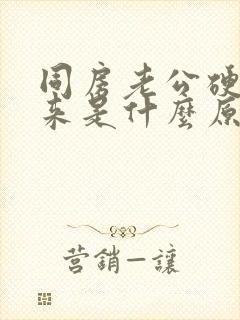 同房老公硬
来是什麼原
营銷—讓